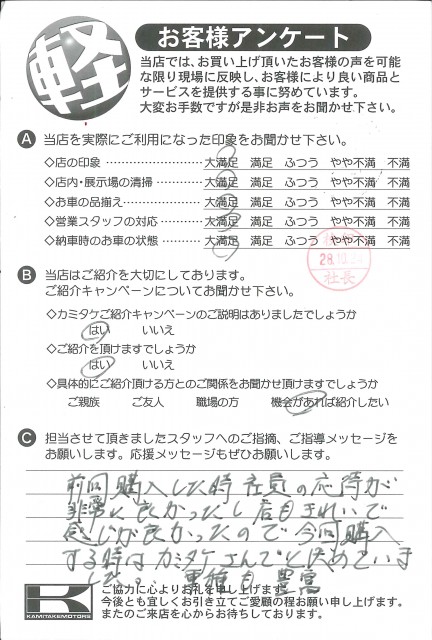 軽
お客様アンケート
当店では、お買い上げ頂いたお客様の声を可能
な限り現場に反映し、お客様により良い商品と
サービスを提供する事に努めています。
大変お手数ですが是非お声をお聞かせ下さい。
A 当店を実際にご利用になった印象をお聞かせ下さい。
◇店の印象 ……………… 大満足 満足 ふつう やや不満 不満
◇店内・展示場の清掃 ……… 大満足 満足 ふつう やや不満 不満
◇お車の品揃え …………… 大満足 満足 ふつう やや不満 不満
◇営業スタッフの対応 ……… 大満足 満足 ふつう やや不満 不満
◇納車時のお車の状態 ……… 大満足 満足 ふつう やや不満 不満
28.10.
社長
B 当店はご紹介を大切にしております。
ご紹介キャンペーンについてお聞かせ下さい。
◇カミタケご紹介キャンペーンのご説明はありましたでしょうか
はい いいえ
◇ご紹介を頂けますでしょうか
はい いいえ
◇具体的にご紹介頂ける方とのご関係をお聞かせ頂けますでしょうか
ご親族 ご友人 職場の方 機会があれば紹介したい
C 担当させて頂きましたスタッフへのご指摘、ご指導メッセージを
お願いします。応援メッセージもぜひお願いします。
前回購入した時 社員の応待が
非常に良かったし店もきれいで
感じが良かったので今回購入
する時はカミタケさんでと決めていま
した。 車種も豊富
K
KAMITAKEMOTORS
ご協力に心よりお礼を申し上げます。
今後とも宜しくお引き立てご愛顧の程お願い申し上げます。
またのご来店を心からお待ちしております。